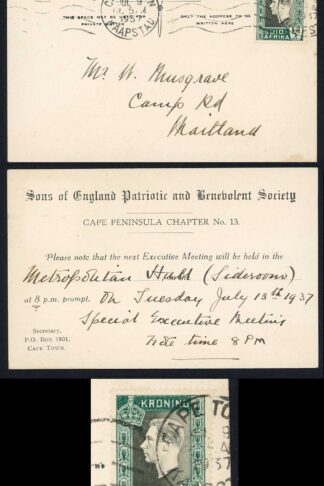 JUL 9
1937
KAAPSTAD
THIS SPACE MAY BE USED FOR
PRIVATE MATTER
ONLY THE ADDRESS TO BE
WRITTEN HERE
SUID
AFRIKA
Mr. W. Musgrave
Camp Rd
Maitland
Sons of England Patriotic and Benevolent Society
CAPE PENINSULA CHAPTER No. 13.
Please note that the next Executive Meeting will be held in the
Metropolitan Hall (Sideroom)
at 8 p.m. prompt. On Tuesday July 13th 1937
Special Executive Meeting
Note time 8 PM
Secretary,
P.O. Box 1801,
CAPE TOWN.
KRONING
CAPE TO
9
37